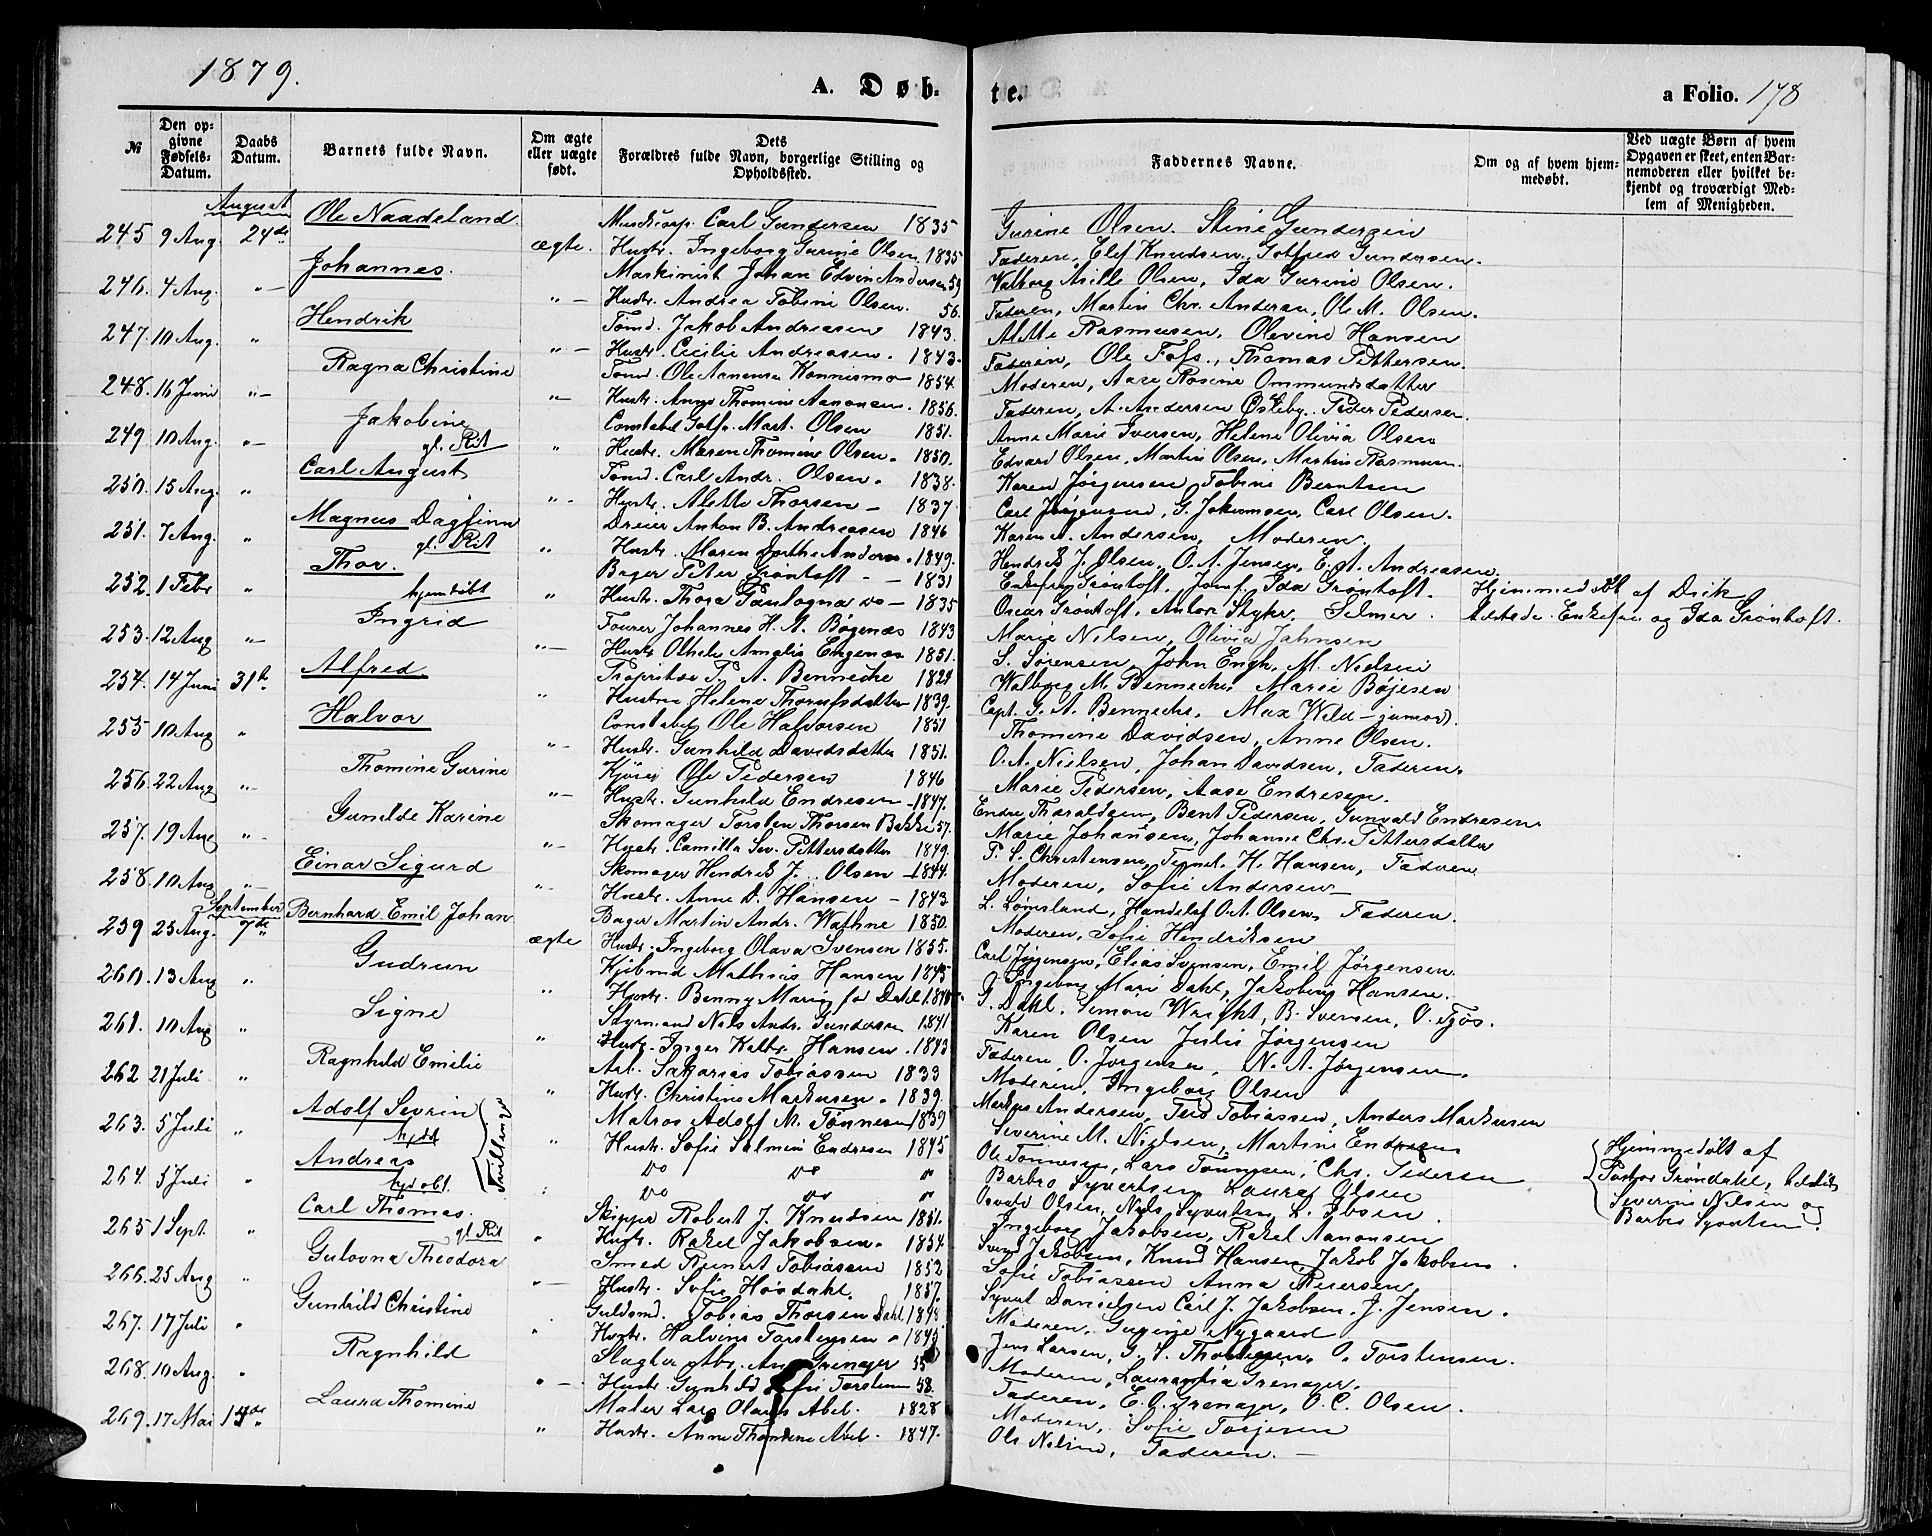 1879.
A. Døb-
te.
a Folio. 178
№
Den op-
givne
Fødsels-
Datum.
Daabs
Datum.
Barnets fulde Navn.
Om ægte
eller uægte
født.
Dets
Forældres fulde Navn, borgerlige Stilling og
Opholdssted.
Faddernes Navne.
Om og af hvem hjem-
medøbt.
Ved uægte Børn af hvem
Opgaven er skeet, enten Bar-
nemoderen eller hvilket be-
kjendt og troværdigt Med-
lem af Menigheden.
August
245 9 Aug. 24de Ole Naadeland. ægte. Carl Gundersen 1835
Hustr. Ingeborg Gurine Olsen 1835
Gurine Olsen. Stine Gundersen
Faderen, Elef Knudsen, Gotfred Gundersen.
246. 4 Aug. "— Johannes. "— Maskinist Johan Edvin Andersen 59
Hustr. Andrea Tobine Olsen. 56.
Valborg Olsen, Ida Gurine Olsen.
Faderen, Martin Chr. Andersen, Ole M. Olsen.
247. 10 Aug. " Hendrik "— Tømd. Jakob Andreasen 1843.
Hustr. Cecilie Andreasen. 1843.
Alette Rasmusen, Olevine Hansen
Faderen, Ole Fofs., Thomas Pettersen.
248. 16 Juni "— Ragna Christine "— Tømd. Ole 1854.
Hustr. Anne Thomine Aanonsen. 1856.
Moderen, Aase Rosine Ommundsdatter
Faderen, A. Andersen Østeby. Peder Pedersen.
249 10 Aug. "— Jakobine gl. Rit " Constabel Golfr. Mart. Olsen 1851.
Hustr. Maren Thomine Olsen. 1850.
Anne Marie Iversen, Helene Olivia Olsen
Edvard Olsen, Martin Olsen, Martin Rasmusen.
250. 15 Aug. " Carl August "— Tømd. Carl Andr. Olsen. 1838.
Hustr. Alette Thorsen — 1837.
Karen Jørgensen Tobine Berntsen
Carl Jørgensen, G. Jakobsen, Carl Olsen.
251. 7 Aug. " Magnus Dagfinn gl. Rit " Dreier Anton B. Andreasen 1846
Hustr. Maren Dorthe Andersen. 1849.
Karen A. Andersen, Moderen,
Hendrik J. Olsen, O. A. Jensen, E. A. Andreasen
252. 1 Febr " Thor. hjemdøbt " Bager Peter Grøntoft — 1831
Hustr. Thora do — 1835
Enkefru Grøntoft, Jomf. Ida Grøntoft.
Oscar Grøntoft, Anton Selmer.
Hjemmedøbt af
Enkefru og Ida Grøntoft.
253. 12 Aug "— Ingrid "— Tourer Johannes H. A. Bøgenæs 1843
Hustr. Othele Amalie Engenæs 1851.
Marie Nilsen, Olivia Jahnsen
S. Sørensen, John Engh, M. Nielsen
254. 14 Juni 31te Alfred. " Proprietær P. A. Bennecke 1821
Hustru Helene Thorufsdatter 1839.
Walborg M. Bennecke, Marie Bøjesen
Capt. G. A. Bennecke, Max Wild — junior.
255 10 Aug " Halvor "— Constabel Ole Halvorsen 1851
Hustr. Gunhild Davidsdatter 1851.
Thomine Davidsen, Anne Olsen.
O. A. Nielsen, Johan Davidsen, Faderen.
256. 22 Aug "— Thomine Gurine "— Kjører Ole Pedersen 1846
Hustr. Gunhild Endresen 1847.
Marie Pedersen, Aase Endresen.
Endre Tharaldsen, Bent Pedersen, Gunvald Endresen
257. 19 Aug "— Gunilde Karine "— Skomager Torsten Thorsen Bakke 57.
Hustr. Camilla Sev. Pettersdatter 1849.
Marie Johansen, Johanne Chr. Pettersdatter
P. S. Christensen, H. Hansen, Faderen
258. 10 Aug "— Einar Sigurd "— Skomager Hendrik J. Olsen 1844.
Hustr. Anne D. Hansen — 1843
Moderen, Sofie Andersen
L. Lømsland, O. A. Olsen, Faderen.
September
259 25 Aug. 7de Bernhard Emil Johan ægte Bager Martin Andr. Wathne 1850.
Hustr. Ingeborg Olava Svensen 1855.
Moderen, Sofie Hendriksen
Carl Jørgensen, Elias Svensen, Emil Jørgensen
260. 13 Aug " Gudrun " Kjøbmd Mathias Hansen 1845
Hustr. Benny Marie fød Dahl 1840
Ingeborg Marie Dahl, Jakobine Hansen.
G. Dahl. Simon Wright, B. Svensen, O. Fjøs.
261. 10 Aug " Signe " Styrmand Nils Andr. Gundersen 1841
Hustr. Inger Kathr. Hansen. 1843
Karen Olsen Julis Jørgensen
Faderen, O. Jørgensen, N. A. Jørgensen.
262 21 Juli " Ragnhild Emilie " Arb. Sakarias Tobiassen 1833
Hustr. Christine Markusen. 1839.
Moderen, Ingeborg Olsen
Markus Andersen, Tobiassen, Anders Markusen
263. 5 Juli " Adolf Sevrin hjdd Tvillinger " Matros Adolf M. Tønnesen 1839
Hustr. Sofie Salmine Endresen 1845
Severine M. Nielsen, Martine Endresen
Ole Tønnesen, Lars Tønnesen, Chr. Pedersen
264. 5 Juli " Andreas hjdøbt. do do "
do do "
Barbro Syvertsen Laura Olsen
Osvald Olsen, Nils Syvertsen, L. Ibsen.
Hjemmedøbt af
Grøndahl,
Severine Nilsen og
Barbro Syvertsen.
265 1 Sept. " Carl Thomas. gl. Rit " Skipper Robert J. Knudsen 1851.
Hustr. Rakel Jakobsen. 1854
Ingeborg Jakobsen, Rakel Aanonsen
Svend Jakobsen, Knud Hansen, Jakob Jakobsen.
266. 25 Aug " Gulovna Theodora "— Smed Reinert Tobiassen 1852
Hustr. Sofie Høvdahl. 1857.
Sofie Tobiassen Anna Reiersen,
Syvert Danielsen Carl J. Jakobsen, J. Jensen.
267. 17 Juli " Gunhild Christine " Guldsmd. Tobias Thorsen Dahl 1848
Hustr. Halvine Torstensen 1845
Moderen, Gurine Nygaard
Jens Larsen, G. S. Thorkelsen, O. Torstensen.
268. 10 Aug. " Ragnhild "— Slagter Grenager 55
Hustr. Gunhild Sofie Torstensen 58.
Moderen, Laurantia Grenager,
Faderen, E. O. Grenager, O. C. Olsen.
269. 17 Mai 14de Laura Thomine " Maler Lars Olaus Abel. 1828
Hustr. Anne Thomine Abel. 1847.
Moderen, Sofie Torjesen
Ole Nilsen, Faderen. —